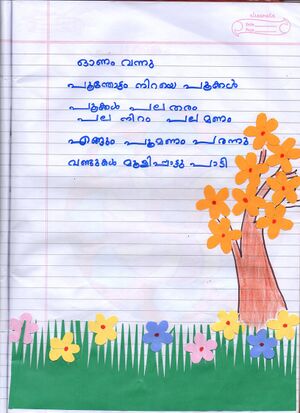 classmate
ഓണം വന്നു
പൂന്തോട്ടം നിറയെ പൂക്കൾ
പൂക്കൾ പല തരം
പല നിറം പല മണം
എങ്ങും പൂമണം പരന്നു
വണ്ടുകൾ മൂളിപ്പാട്ടു പാടി